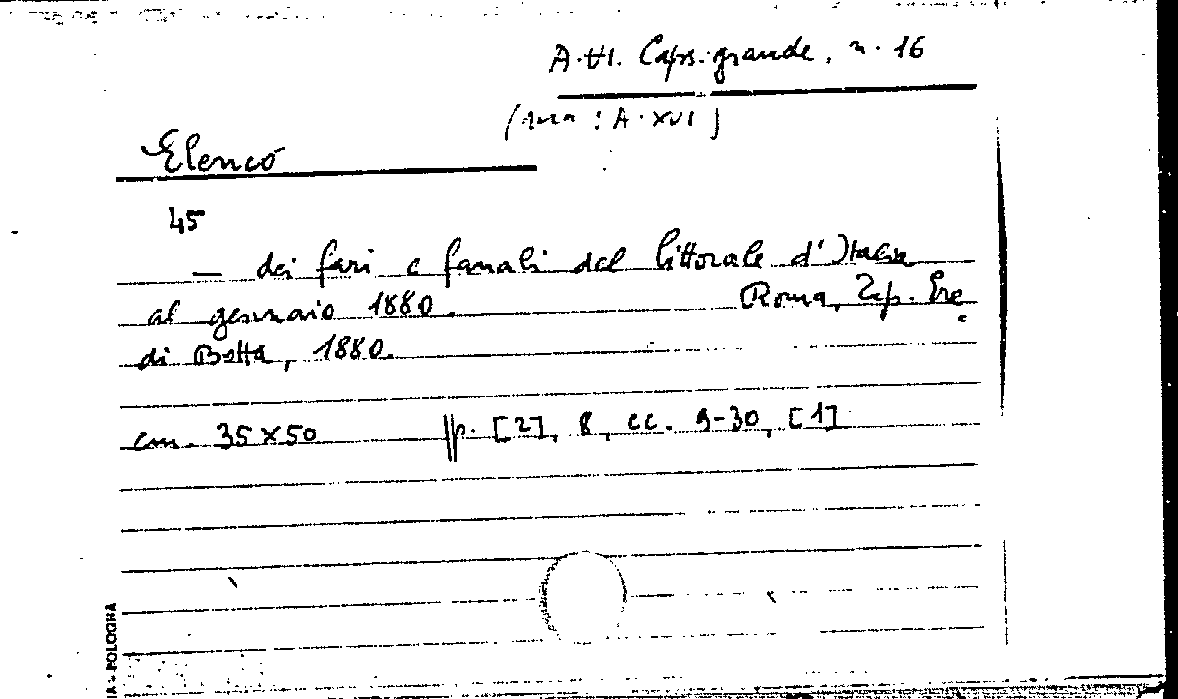 A.tt. Caps. grande, n. 16
(ma : A. XVI)
Elenco
45
— dei fari e fanali del littorale d'Italia
al gennaio 1880. Roma, Tip. Ere
di Botta, 1880.
cm. 35x50 pp. [2], 8, cc. 9-30, [1]
IA - BOLOGNA